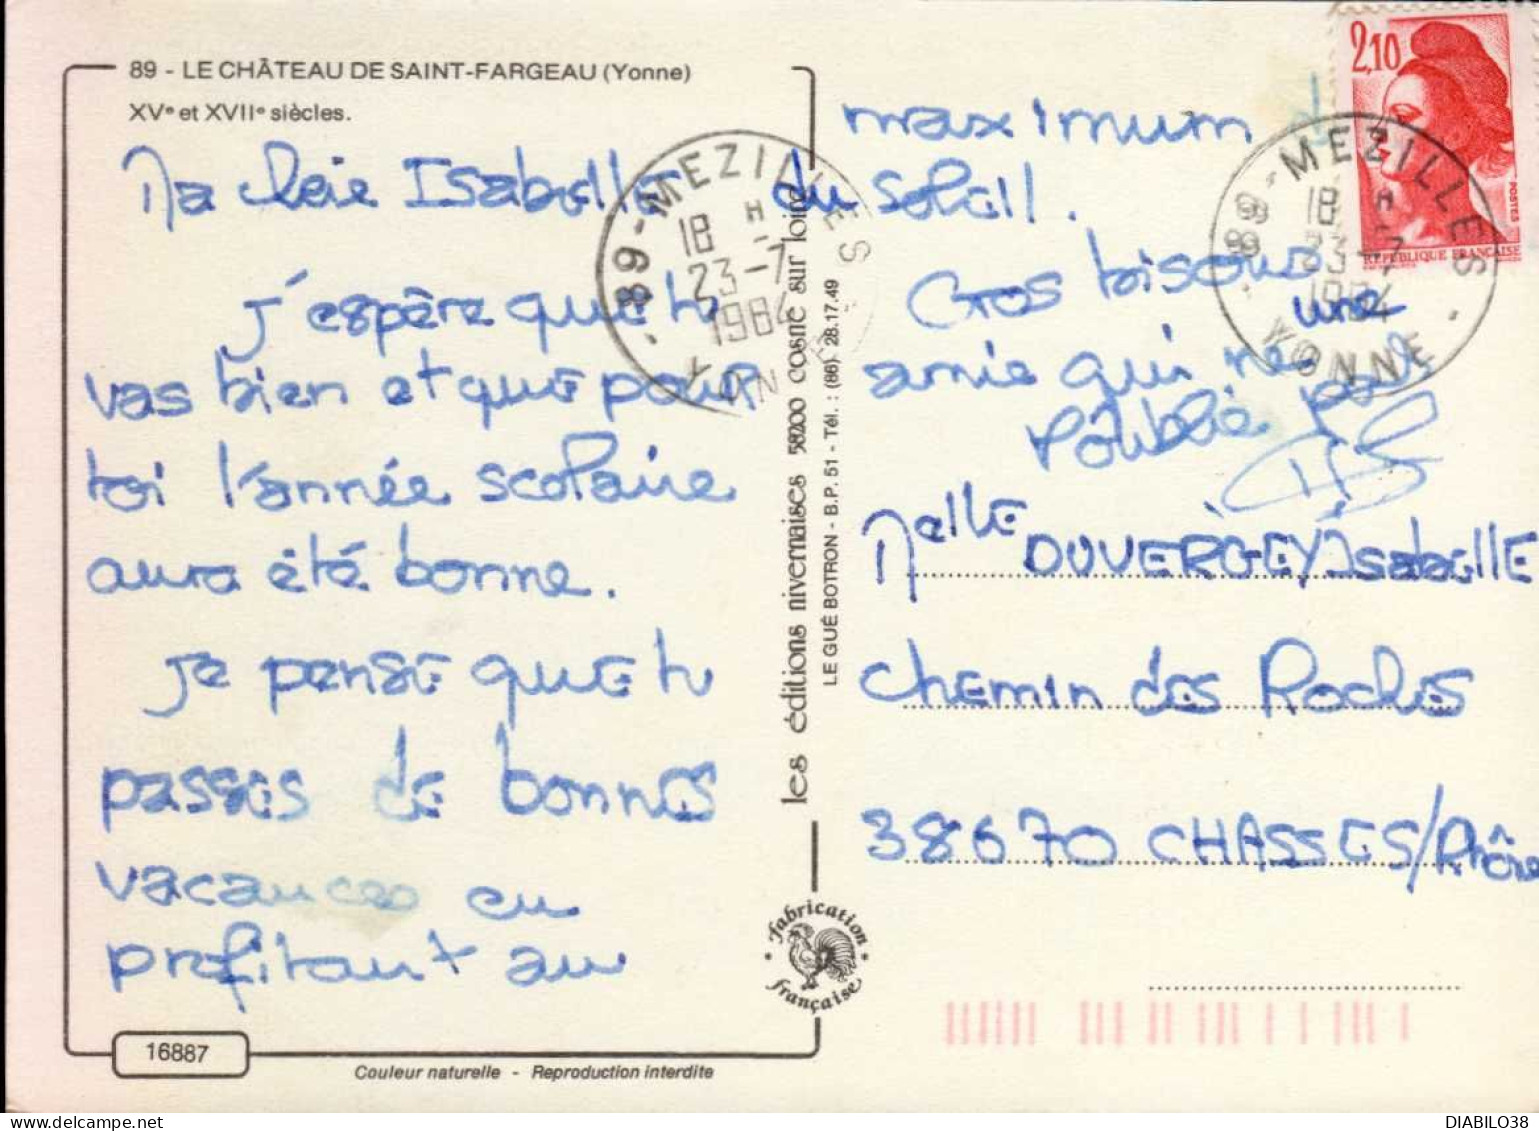 89 - LE CHÂTEAU DE SAINT-FARGEAU (Yonne)
XVe et XVIIe siècles.
Ma chère Isabelle
j'espère que tu
vas bien et que pour
toi l'année scolaire
aura été bonne.
Je pense que tu
passes de bonnes
vacances en
profitant au
maximum
du soleil.
Gros bisous
une
amie qui ne
t'oublie pas
Melle DUVERGEY Isabelle
chemin des Roches
38670 CHASSES/Rhône
2,10
POSTES
REPUBLIQUE FRANÇAISE
89 - MEZILLES
18 H
23-7
1984
YONNE
89 - MEZILLES
18 H
23-7
1984
YONNE
les éditions nivernaises 58200 cosne sur loire
LE GUÉ BOTRON - B.P. 51 - Tél. : (86) 28.17.49
fabrication
française
16887
Couleur naturelle - Reproduction interdite
DIABILO38